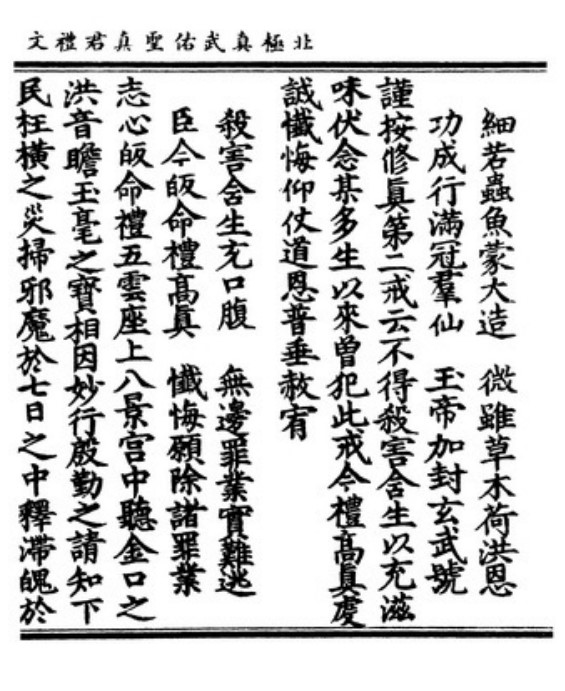 北極真武佑聖真君禮文
細若蟲魚蒙大造　微雖草木荷洪恩
功成行滿冠羣仙　玉帝加封玄武號
謹按修眞第二戒云不得殺害含生以充滋
味伏念某多生以來曾犯此戒今禮高眞虔
誠懺悔仰仗道恩普垂赦宥
殺害含生充口腹　無邊罪業實難逃
臣今皈命禮高眞　懺悔願除諸罪業
志心皈命禮五雲座上八景宮中聽金口之
洪音瞻玉毫之寶相因妙行殷勤之請知下
民枉橫之災掃邪魔於七日之中釋滯魄於